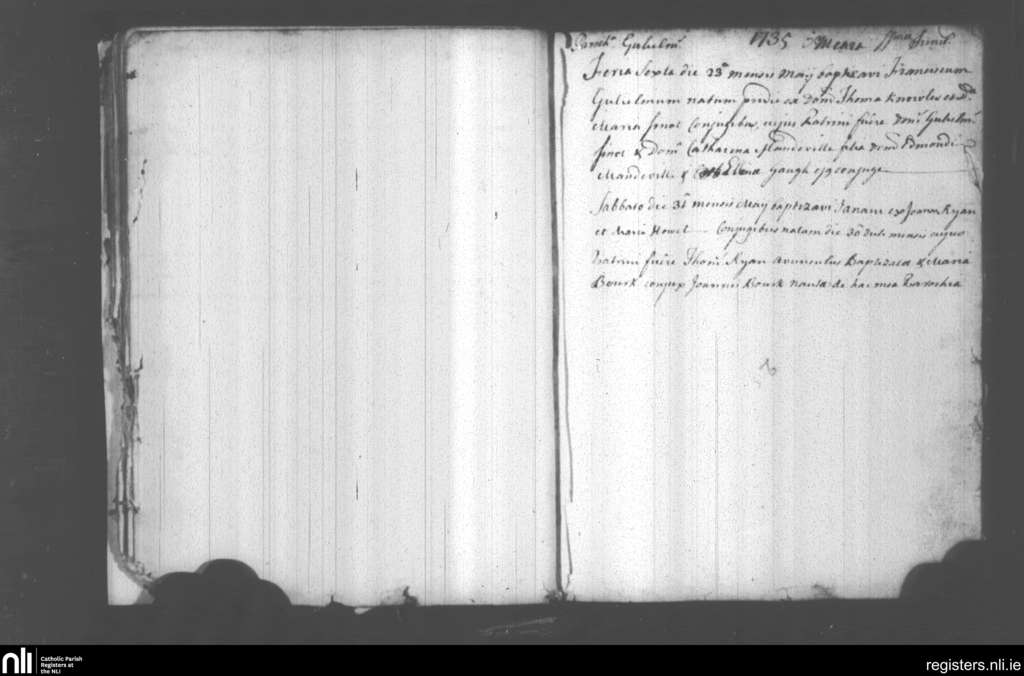 Paroch. Gulielm. 1735
Feria Sexta die 23° mensis Maij baptizavi Franciscum
Gulielmum natum pridie ex Dom° Thoma Knowles et Dª
Maria Sinot Conjugibus, cujus Patrini fuere Domˢ Gulielmˢ
Sinot & Domª Catharena Mandeville filia Domⁱ Edmondi
Mandeville & Ellena Gough ejq conjuge
Sabbato die 31 mensis May baptizavi Janam ex Joanne Ryan
et Maria Howet Conjugibus natam die 30 mensis cujus
Patrini fuere Thomˢ Ryan avunculus Baptizatæ & Maria
Bourk conjux Joannis Bourk nauta de hac mea Parochia
nli
Catholic Parish
Registers at
the NLI
registers.nli.ie